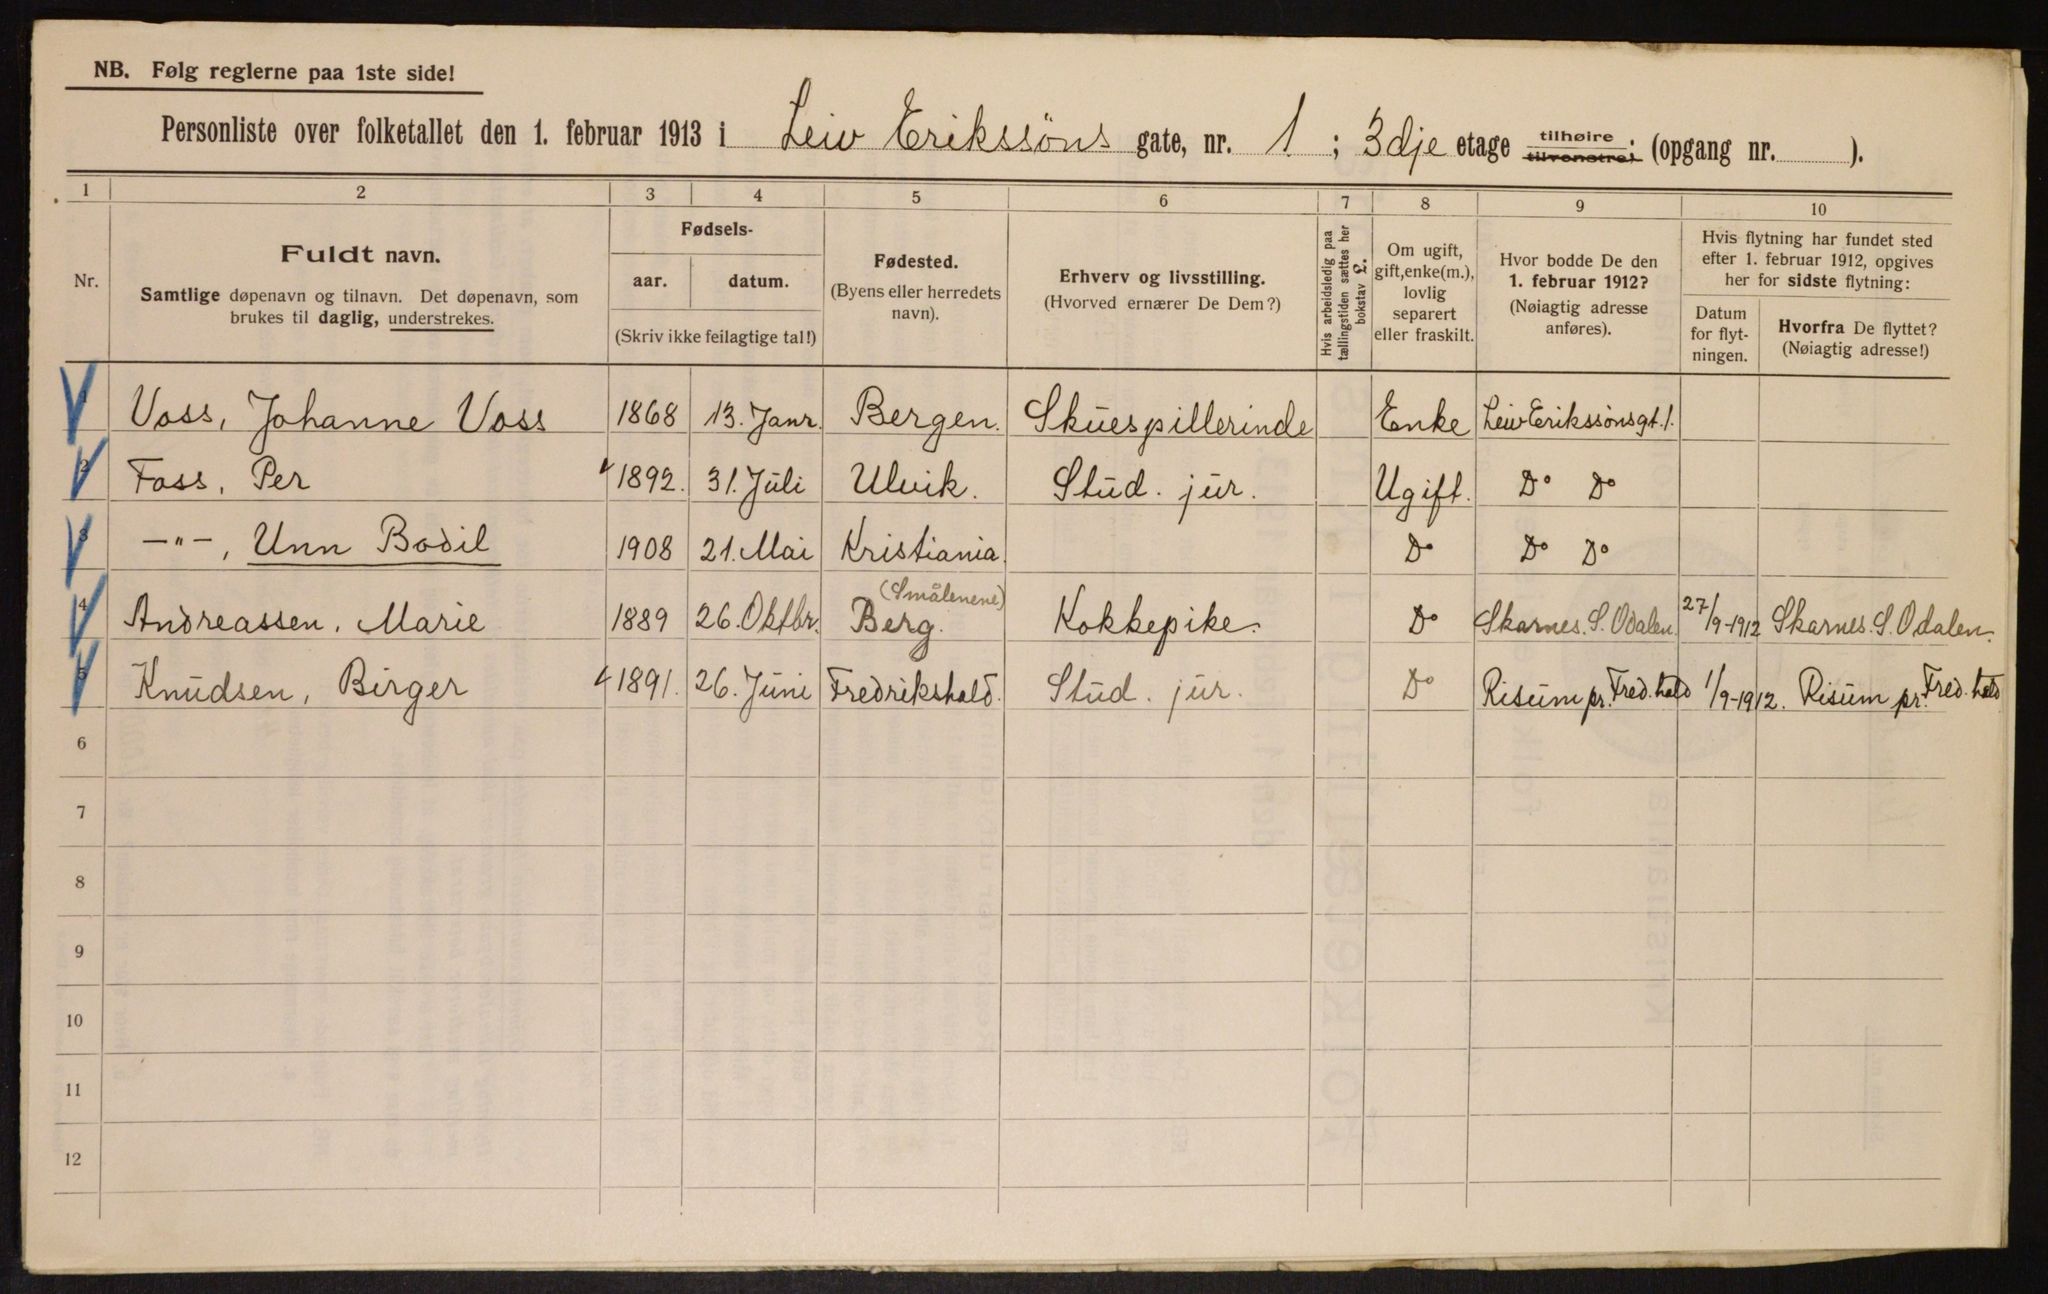 NB. Følg reglerne paa 1ste side!
Personliste over folketallet den 1. februar 1913 i Leiv Erikssöns gate, nr. 1 ; 3dje etage tilhøire tilvenstre; (opgang nr. ).
1 2 3 4 5 6 7 8 9 10
Nr.
Fuldt navn.
Samtlige døpenavn og tilnavn. Det døpenavn, som
brukes til daglig, understrekes.
Fødsels-
aar. datum.
(Skriv ikke feilagtige tal!)
Fødested.
(Byens eller herredets
navn).
Erhverv og livsstilling.
(Hvorved ernærer De Dem?)
Hvis arbeidsledig paa
tællingstiden sættes her
bokstav L.
Om ugift,
gift, enke(m.),
lovlig
separert
eller fraskilt.
Hvor bodde De den
1. februar 1912?
(Nøiagtig adresse
anføres).
Hvis flytning har fundet sted
efter 1. februar 1912, opgives
her for sidste flytning:
Datum
for flyt-
ningen.
Hvorfra De flyttet?
(Nøiagtig adresse!)
1 Voss, Johanne Voss 1868 13. Janr. Bergen. Skuespillerinde Enke Leiv Erikssönsgt. 1.
2 Foss, Per 1892. 31. Júli Ulvik. Stúd. júr. Ugift. Do Do
3 —"—, Unn Bodil 1908 21. Mai Kristiania. Do Do Do
4 Andreassen, Marie 1889 26. Oktbr. Berg. (Smålenene) Kokkepike. Do Skarnes. S. Odalen. 27/9-1912 Skarnes. S. Odalen.
5 Knúdsen, Birger 1891. 26. Júni Fredrikshald. Stúd. júr. Do Risúm pr. Fred.hald 1/9-1912. Risúm pr. Fred.hald
6
7
8
9
10
11
12